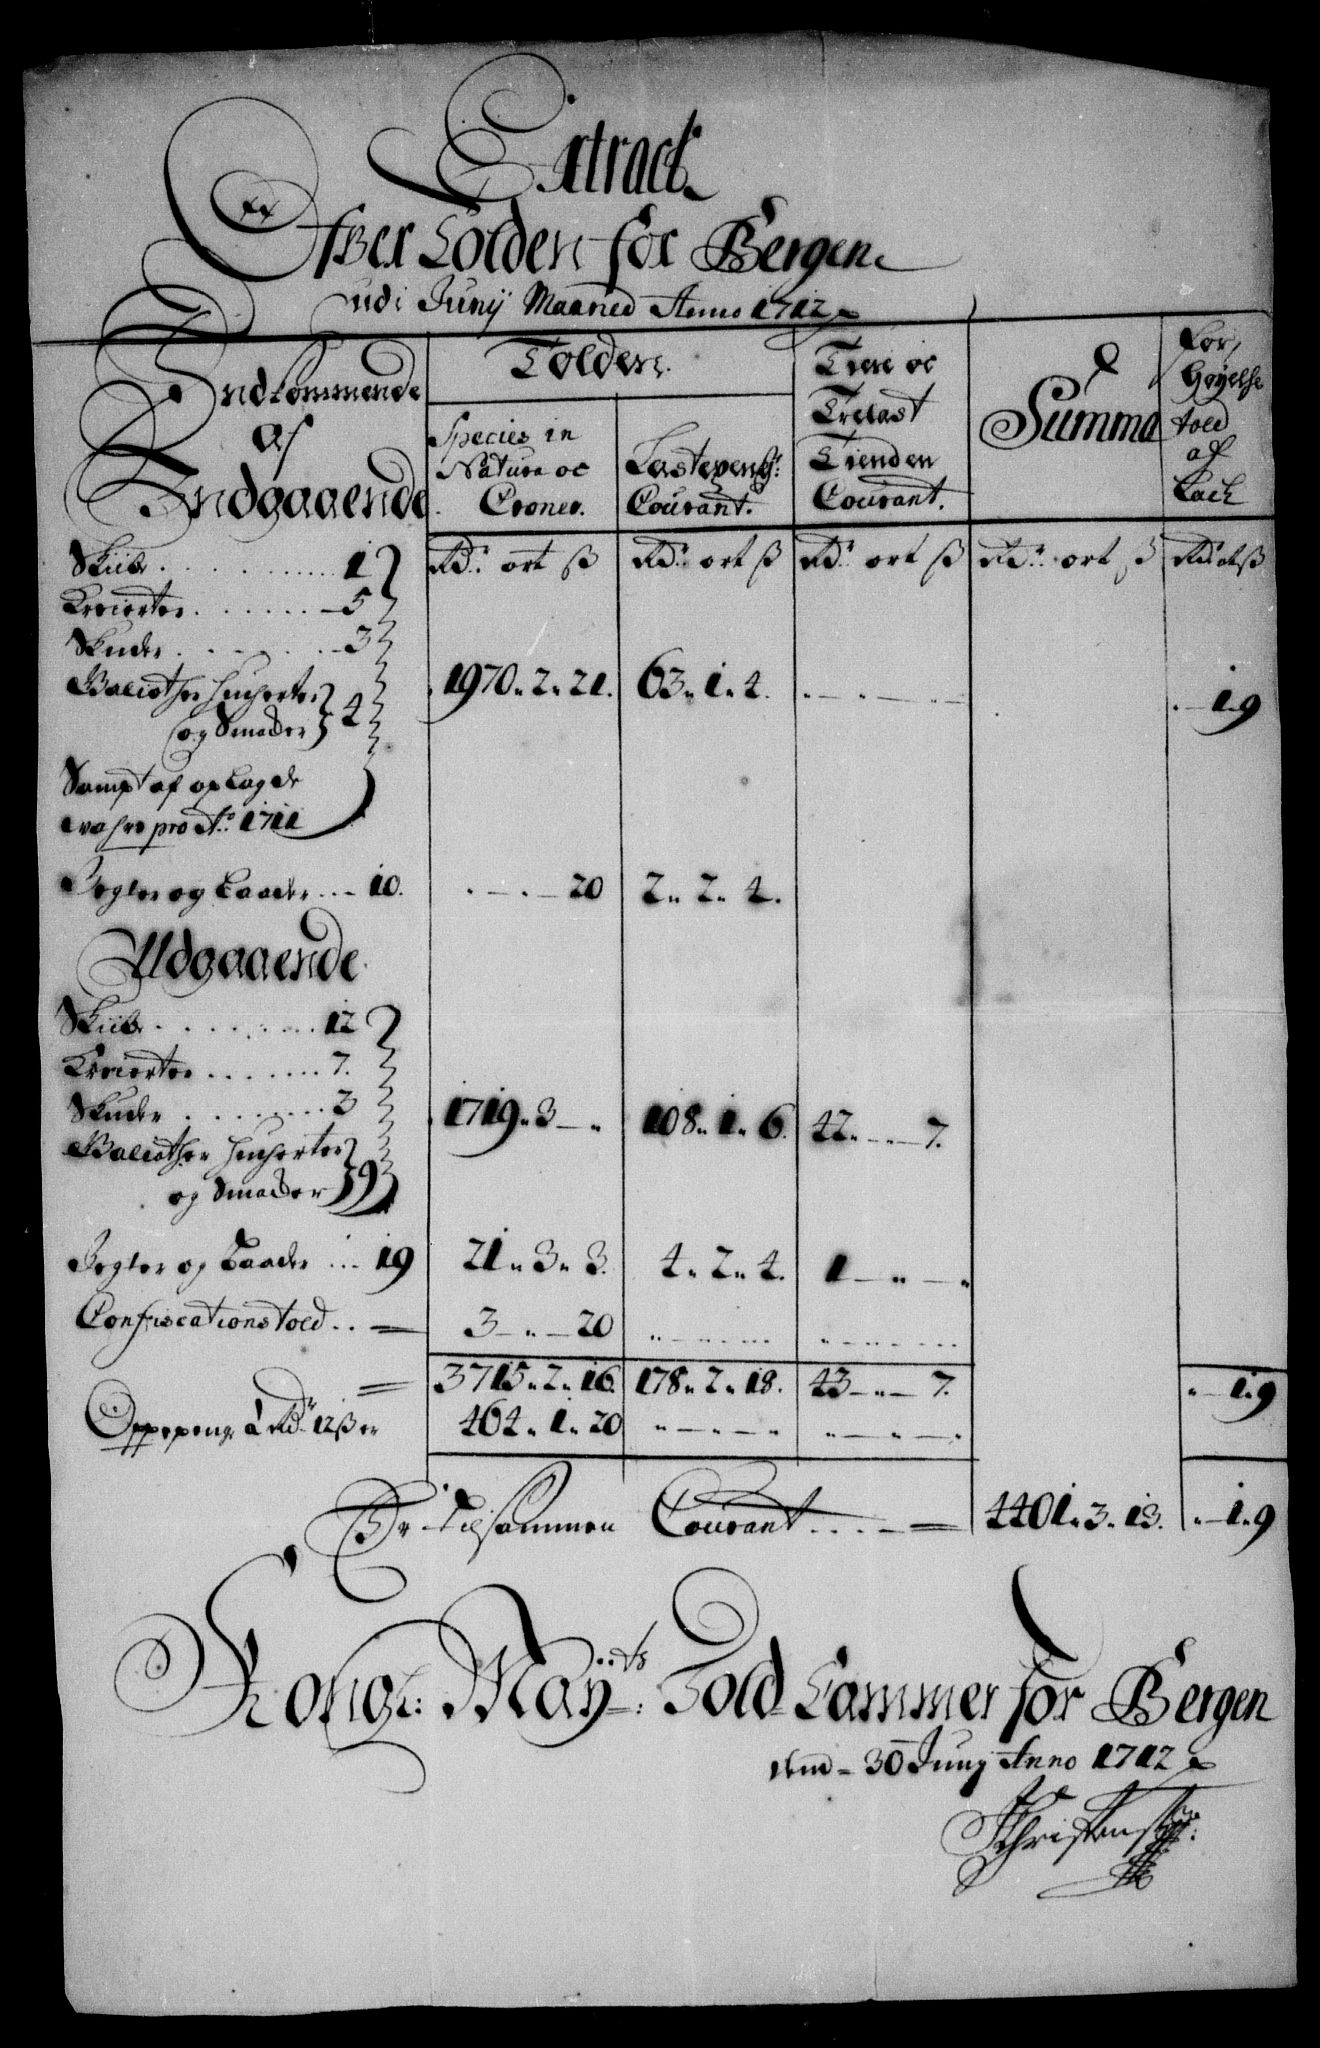 Extract
Ofver Tolden for Bergen
udi Junij Maaned Anno 1712
Indkommende
af
Indgaaende
Tolden.
Species in
Natura oc
Croner.
Lastepeng:
Courant.
Tiere oc
Trelast
Tienden
Courant.
Summa
For/
høyelse
told
af
Tack
Rdr. ort ß
Rdr. ort ß
Rdr. ort ß
Rdr. ort ß
Rdr. ort ß
Skiibe . . . . . . . . 1
Creierter . . . . . . 5
Skuder . . . . . . 3
Galiother Huchorter
og Smacker 4
Sampt af oplagde
wahre pro Ao. 1711
1970 " 2 " 21. 63 " 1 " 4. . — " — " — " — 1 " 9
Jegter og Baader . . . 10. . — . — 20 2 " 2 " 4.
Udgaaende.
Skiibe . . . . . . . . 12
Creierter . . . . . . . 7.
Skuder . . . . . . . . 3
Galiother Huchorter
og Smacker 39
1719 " 3 — " 108 " 1 " 6. 42 " — " — 7.
Jegter og Baader . . . 19 21 " 3 " 3. 4 " 2 " 4. 1 — " — "
Confiscations told . . = 3 — " — 20 " — " — . . . " — . . — . . .
= 3715 " 2 " 16. 178 " 2 " 18. 43 — " — 7. " — 1 " 9
Oppepenge à Rdr. 12 ß er 464 " 1 " 20 " — " — " — " " — " — "
Er tilsammen Courant . . . . = 4401 " 3 " 13. " — 1 " 9
Kongl: Mayts: Told Cammer for Bergen
den 30 Junij Anno 1712